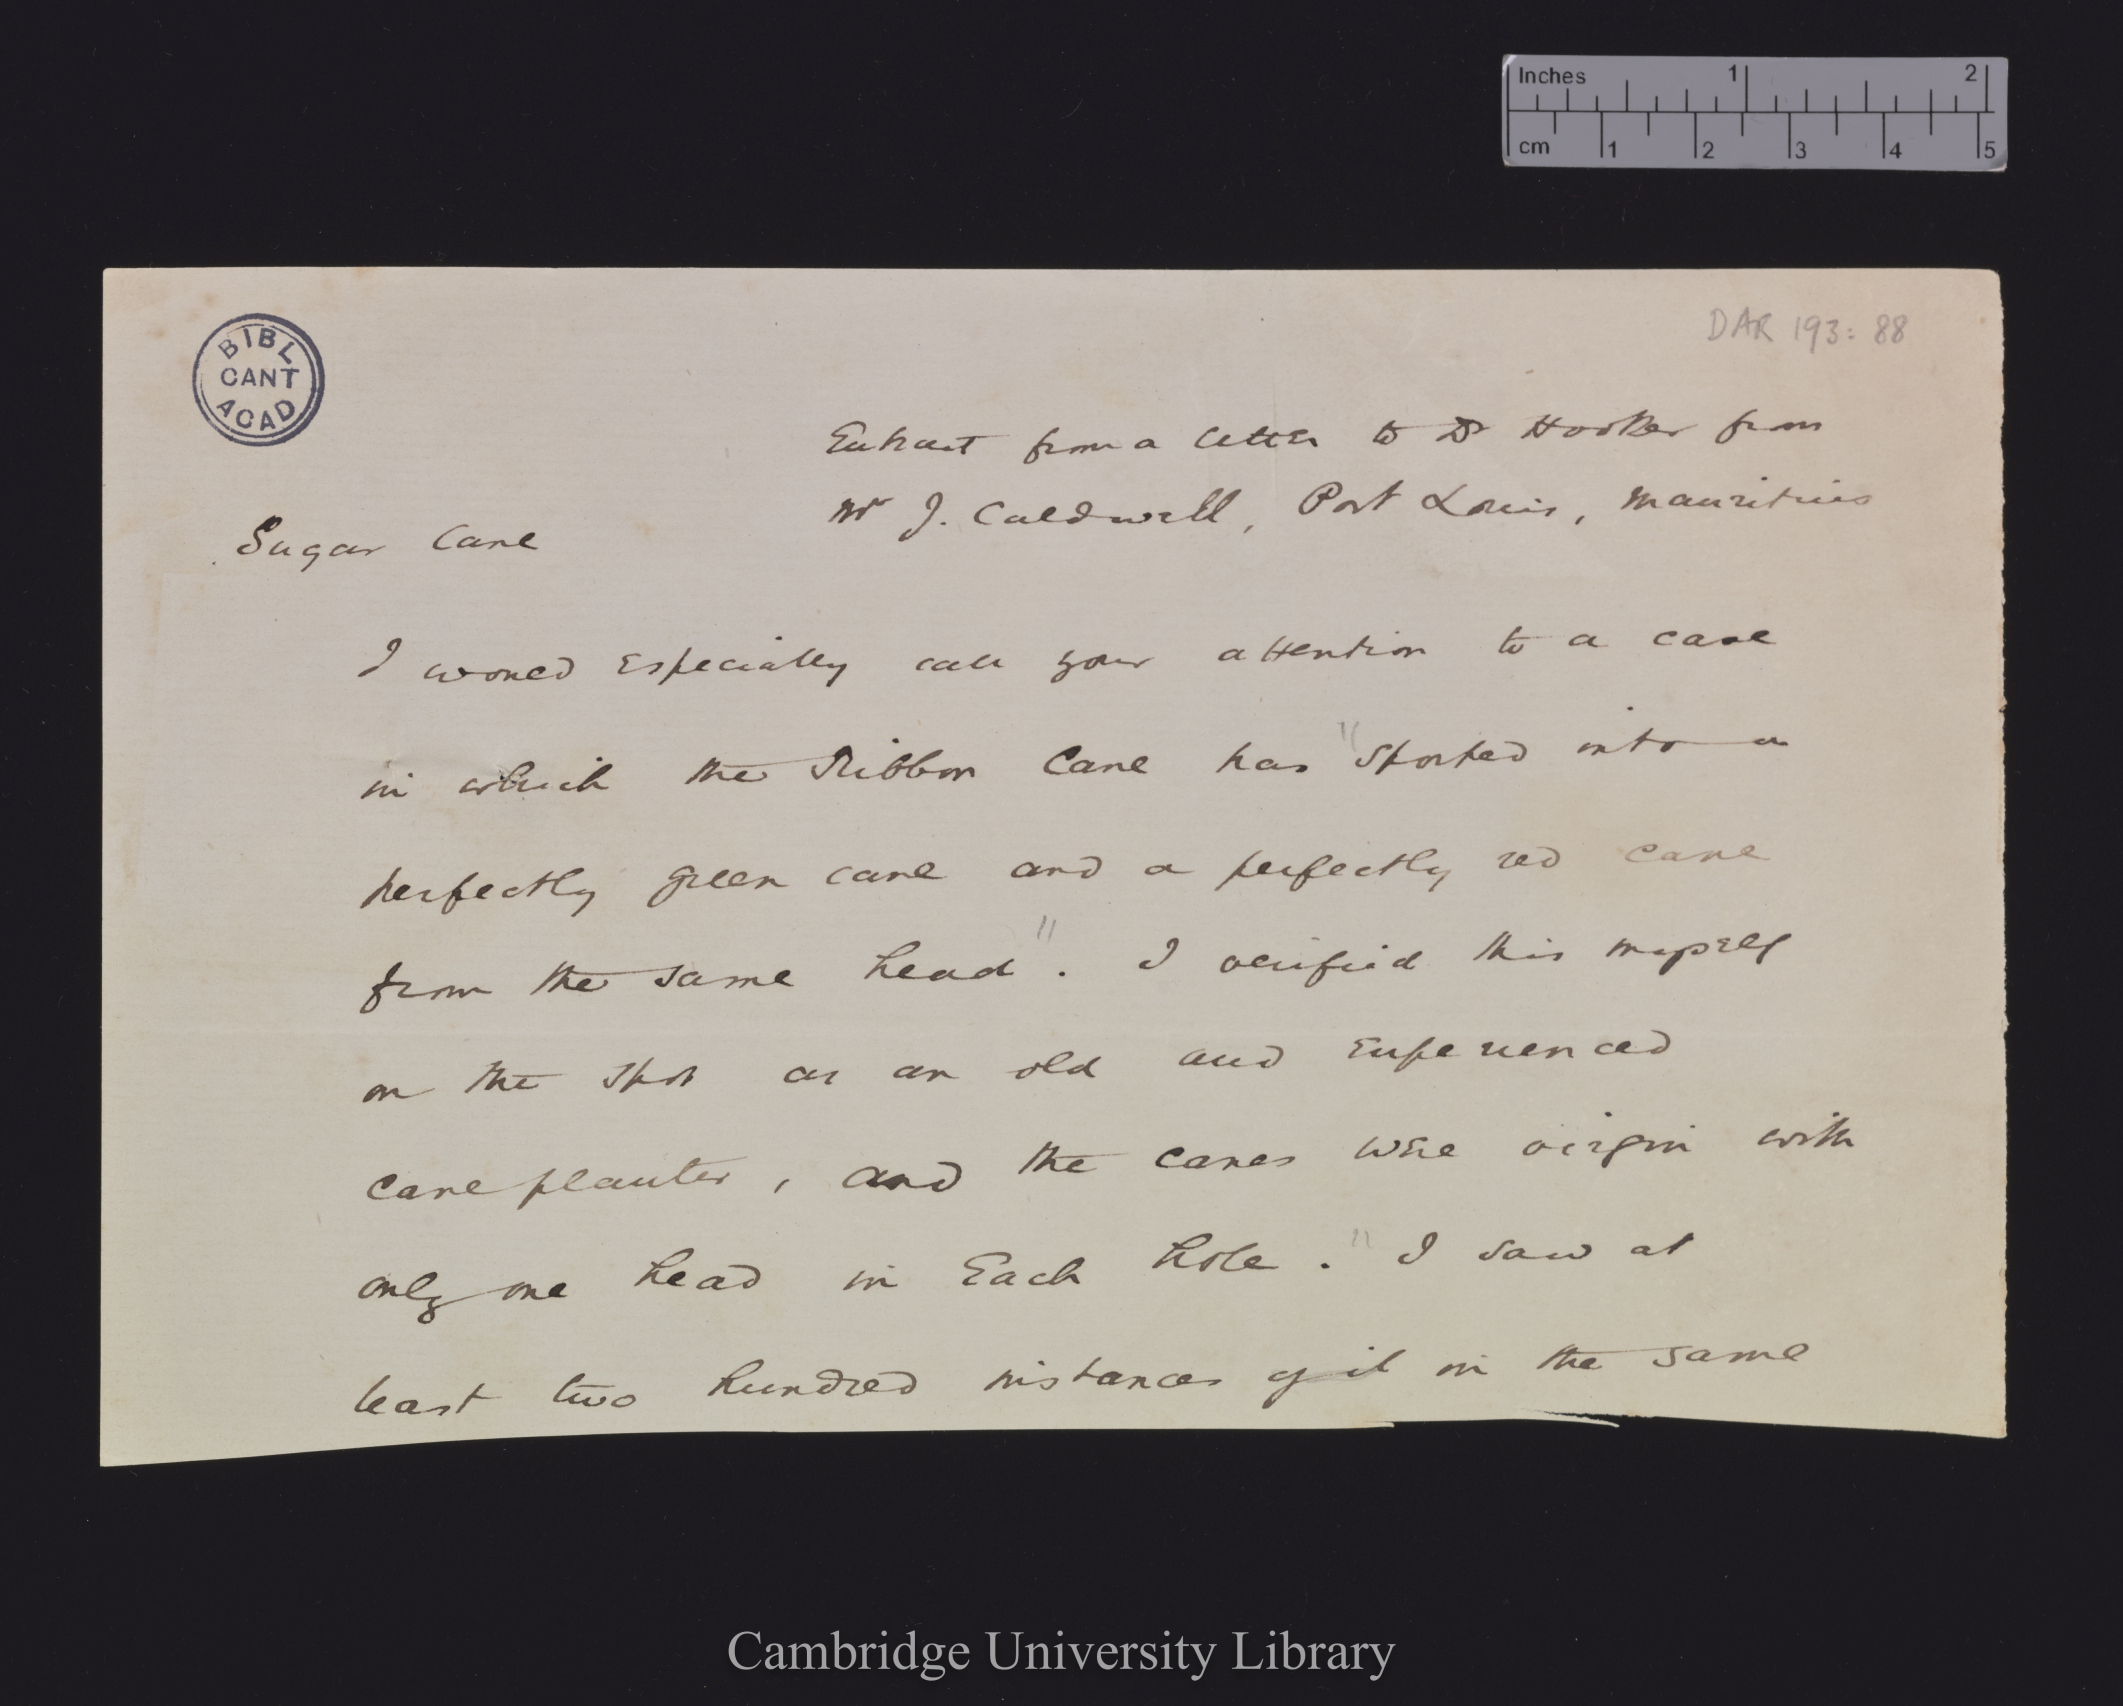 Inches 1 2
cm 1 2 3 4 5
BIBL
CANT
ACAD
DAR 193: 88
Extract from a letter to Dr Hooker from
Mr J. Caldwell, Port Louis, Mauritius
Sugar Cane
I would especially call your attention to a case
in which the Ribbon Cane has "sported into a
perfectly green cane and a perfectly red cane
from the same head". I verified this myself
on the spot as an old and experienced
cane planter, and the canes were virgin with
only one head in Each hole. " I saw at
least two hundred instances of it in the same
Cambridge University Library